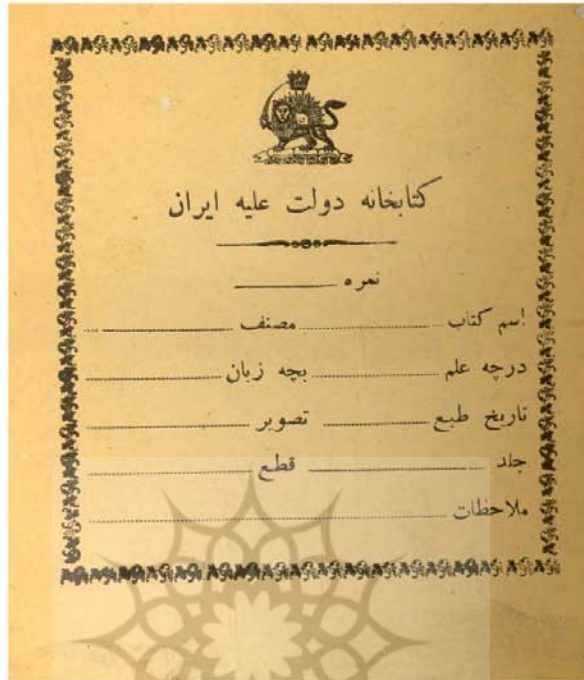 کتابخانه دولت علیه ایران
نمره
اسم کتاب مصنف
درچه علم بچه زبان
تاریخ طبع تصویر
جلد قطع
ملاحظات